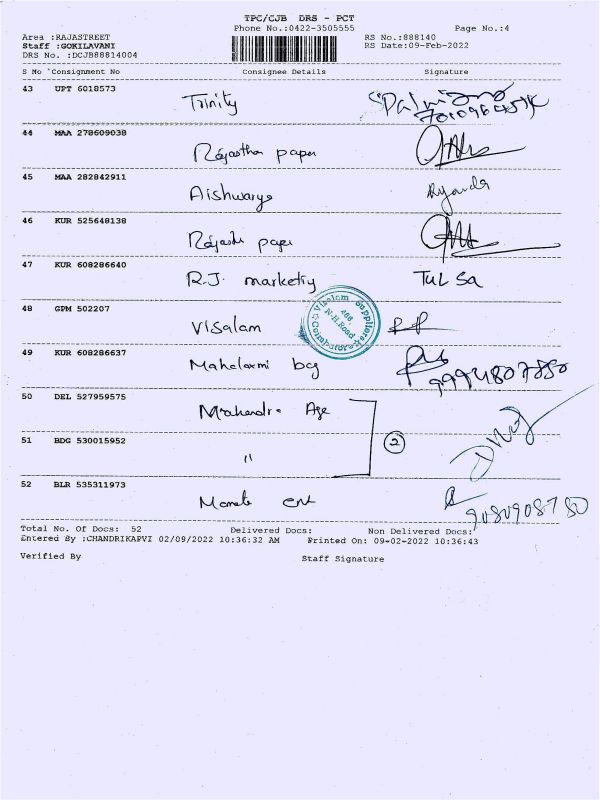 TPC/CJB DRS - PCT
Phone No.:0422-3505555 Page No.:4
Area :RAJASTREET RS No.:888140
Staff :GOKILAVANI RS Date:09-Feb-2022
DRS No. :DCJB88814004
S No Consignment No Consignee Details Signature
43 UPT 6018573
Trinity
44 MAA 278609038
Rajasthan paper
45 MAA 282842911
Aishwarya
46 KUR 525648138
paper
47 KUR 608286640
R.J. marketing TULSA
48 GPM 502207
Visalam
Visalam Suppliers
N.H.Road,
Coimbatore
49 KUR 608286637
Mahalaxmi bag
50 DEL 527959575
Mahendra Age
51 BDG 530015952
"
2
52 BLR 535311973
9080908780
Total No. Of Docs: 52 Delivered Docs: Non Delivered Docs:
Entered By :CHANDRIKAPVI 02/09/2022 10:36:32 AM Printed On: 09-02-2022 10:36:43
Verified By Staff Signature